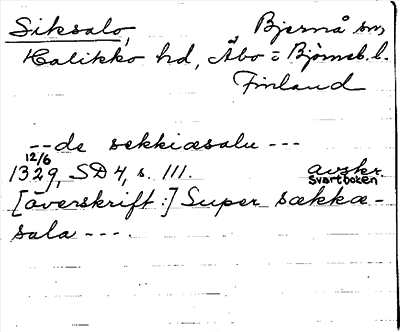 Siksalo, Bjernå sn,
Halikko hd, Åbo = Björneb. l.
Finland
--de sekkiæsalu ---
12/6
1329, SD 4, s. 111. avskr.
svartboken
[överskrift:] Super sækkæ-
sala ---.